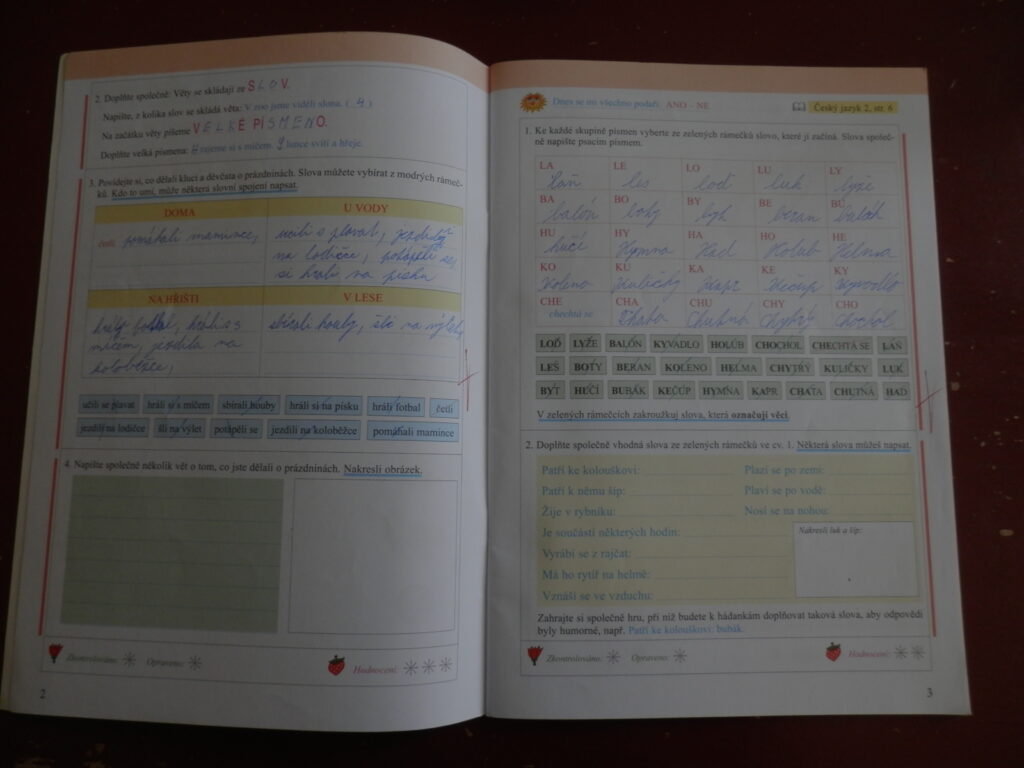 2. Doplňte společně: Věty se skládají ze SLOV.
Napište, z kolika slov se skládá věta: V zoo jsme viděli slona. (4)
Na začátku věty píšeme VELKÉ PÍSMENO.
Doplňte velká písmena: Hrajeme si s míčem. Slunce svítí a hřeje.
3. Povídejte si, co dělali kluci a děvčata o prázdninách. Slova můžete vybírat z modrých rámeč-
ků. Kdo to umí, může některá slovní spojení napsat.
DOMA
U VODY
četli pomáhali mamince,
učili s plavat, jezdily
na lodičce, potápěli se,
si hráli na písku
NA HŘIŠTI
V LESE
hráli fotbal, hráli s
míčem, jezdila na
koloběžce,
sbírali houby, šli na výlet,
učili se plavat hráli si s míčem sbírali houby hráli si na písku hráli fotbal četli
jezdili na lodičce šli na výlet potápěli se jezdili na koloběžce pomáhali mamince
4. Napište společně několik vět o tom, co jste dělali o prázdninách. Nakresli obrázek.
Zkontrolováno: Opraveno: Hodnocení:
2
Dnes se mi všechno podaří. ANO – NE
Český jazyk 2, str. 6
1. Ke každé skupině písmen vyberte ze zelených rámečků slovo, které jí začíná. Slova společ-
ně napište psacím písmem.
LA LE LO LU LY
laň les loď luk lyže
BA BO BY BE BU
balón boty byt beran bubák
HU HY HA HO HE
hučí Hymna Had Holub Helma
KO KU KA KE KY
Koleno kuličky Kapr Kečup Kyvadlo
CHE CHA CHU CHY CHO
chechtá se Chata Chutná Chytrý Chochol
LOĎ LYŽE BALÓN KYVADLO HOLUB CHOCHOL CHECHTÁ SE LAŇ
LES BOTY BERAN KOLENO HELMA CHYTRÝ KULIČKY LUK
BYT HUČÍ BUBÁK KEČUP HYMNA KAPR CHATA CHUTNÁ HAD
V zelených rámečcích zakroužkuj slova, která označují věci.
2. Doplňte společně vhodná slova ze zelených rámečků ve cv. 1. Některá slova můžeš napsat.
Patří ke kolouškovi: Plazí se po zemi:
Patří k němu šíp: Plaví se po vodě:
Žije v rybníku: Nosí se na nohou:
Je součástí některých hodin:
Nakresli luk a šíp:
Vyrábí se z rajčat:
Má ho rytíř na helmě:
Vznáší se ve vzduchu:
Zahrajte si společně hru, při níž budete k hádankám doplňovat taková slova, aby odpovědi
byly humorné, např. Patří ke kolouškovi: bubák.
Zkontrolováno: Opraveno: Hodnocení:
3